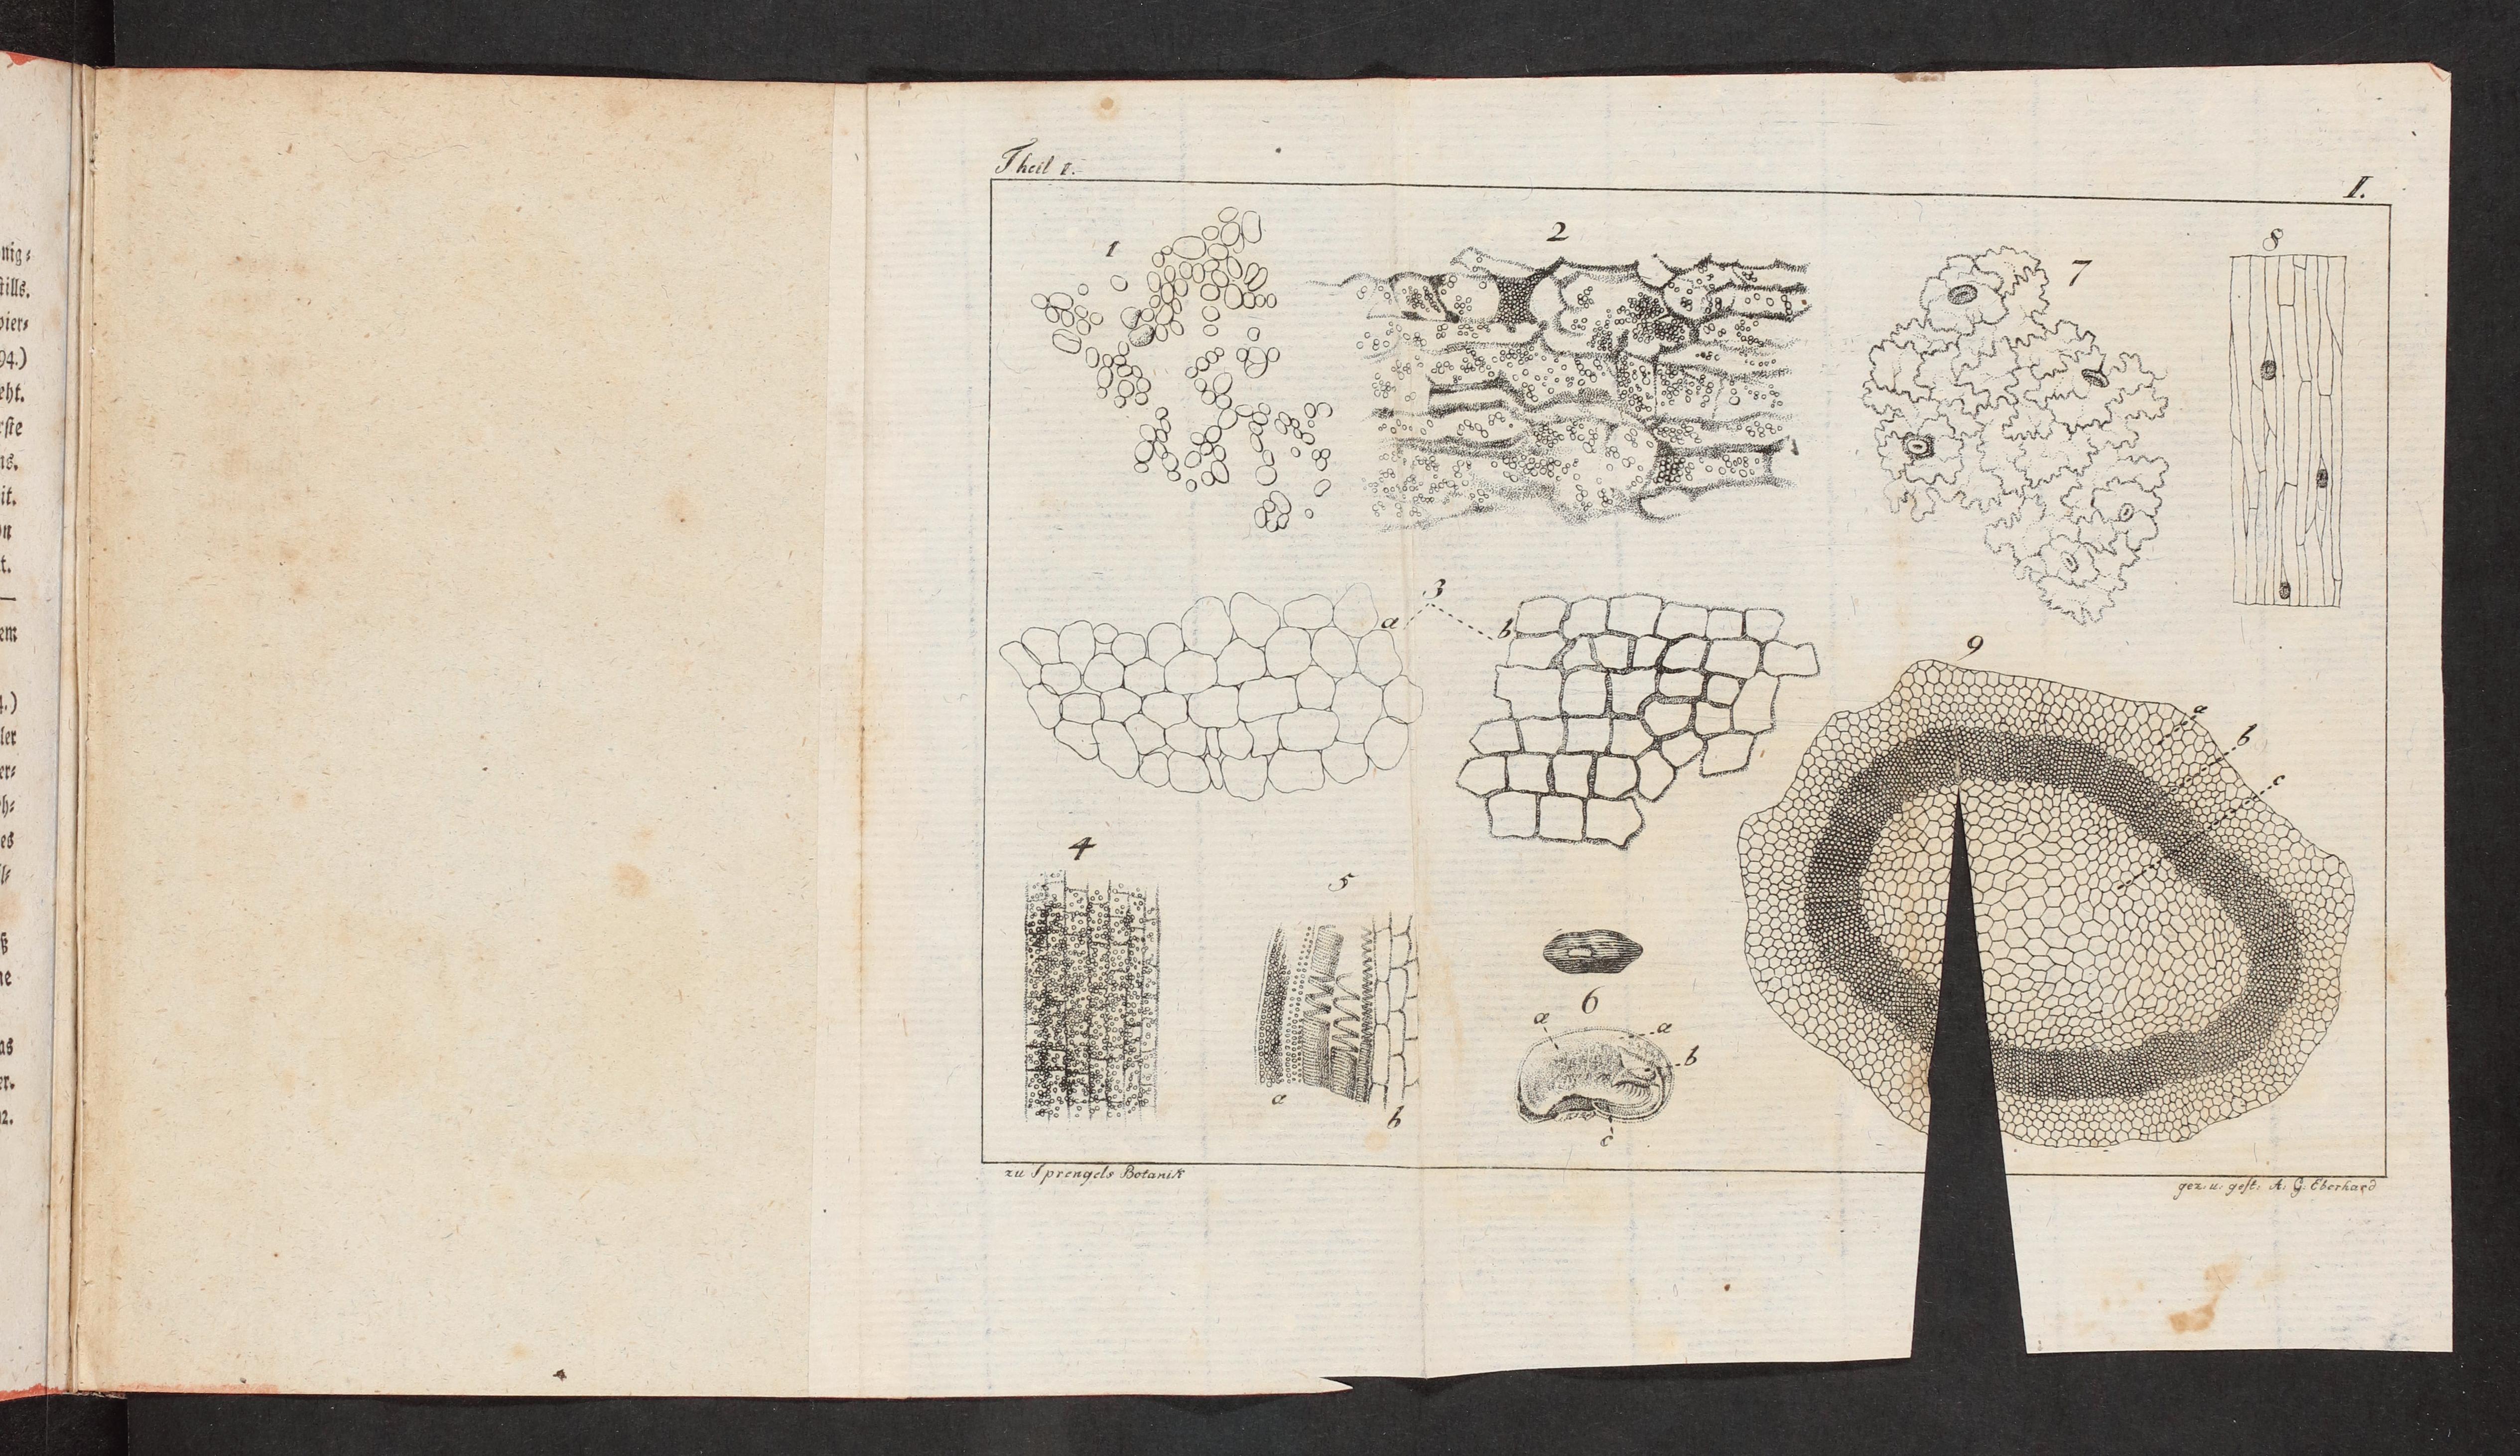 nig⸗
ſtills.
pier⸗
94.)
eht.
rſte
ns.
it.
on
t.
em
4.)
ler
er⸗
h⸗
es
l⸗
ß
ne
as
er.
12.
Theil 1.
I.
1
2
7
8
3
a
b
9
a
b
c
4
5
a
b
6
a
a
b
c
zu Sprengels Botanik
gez. u. geſt. A. G. Eberhard